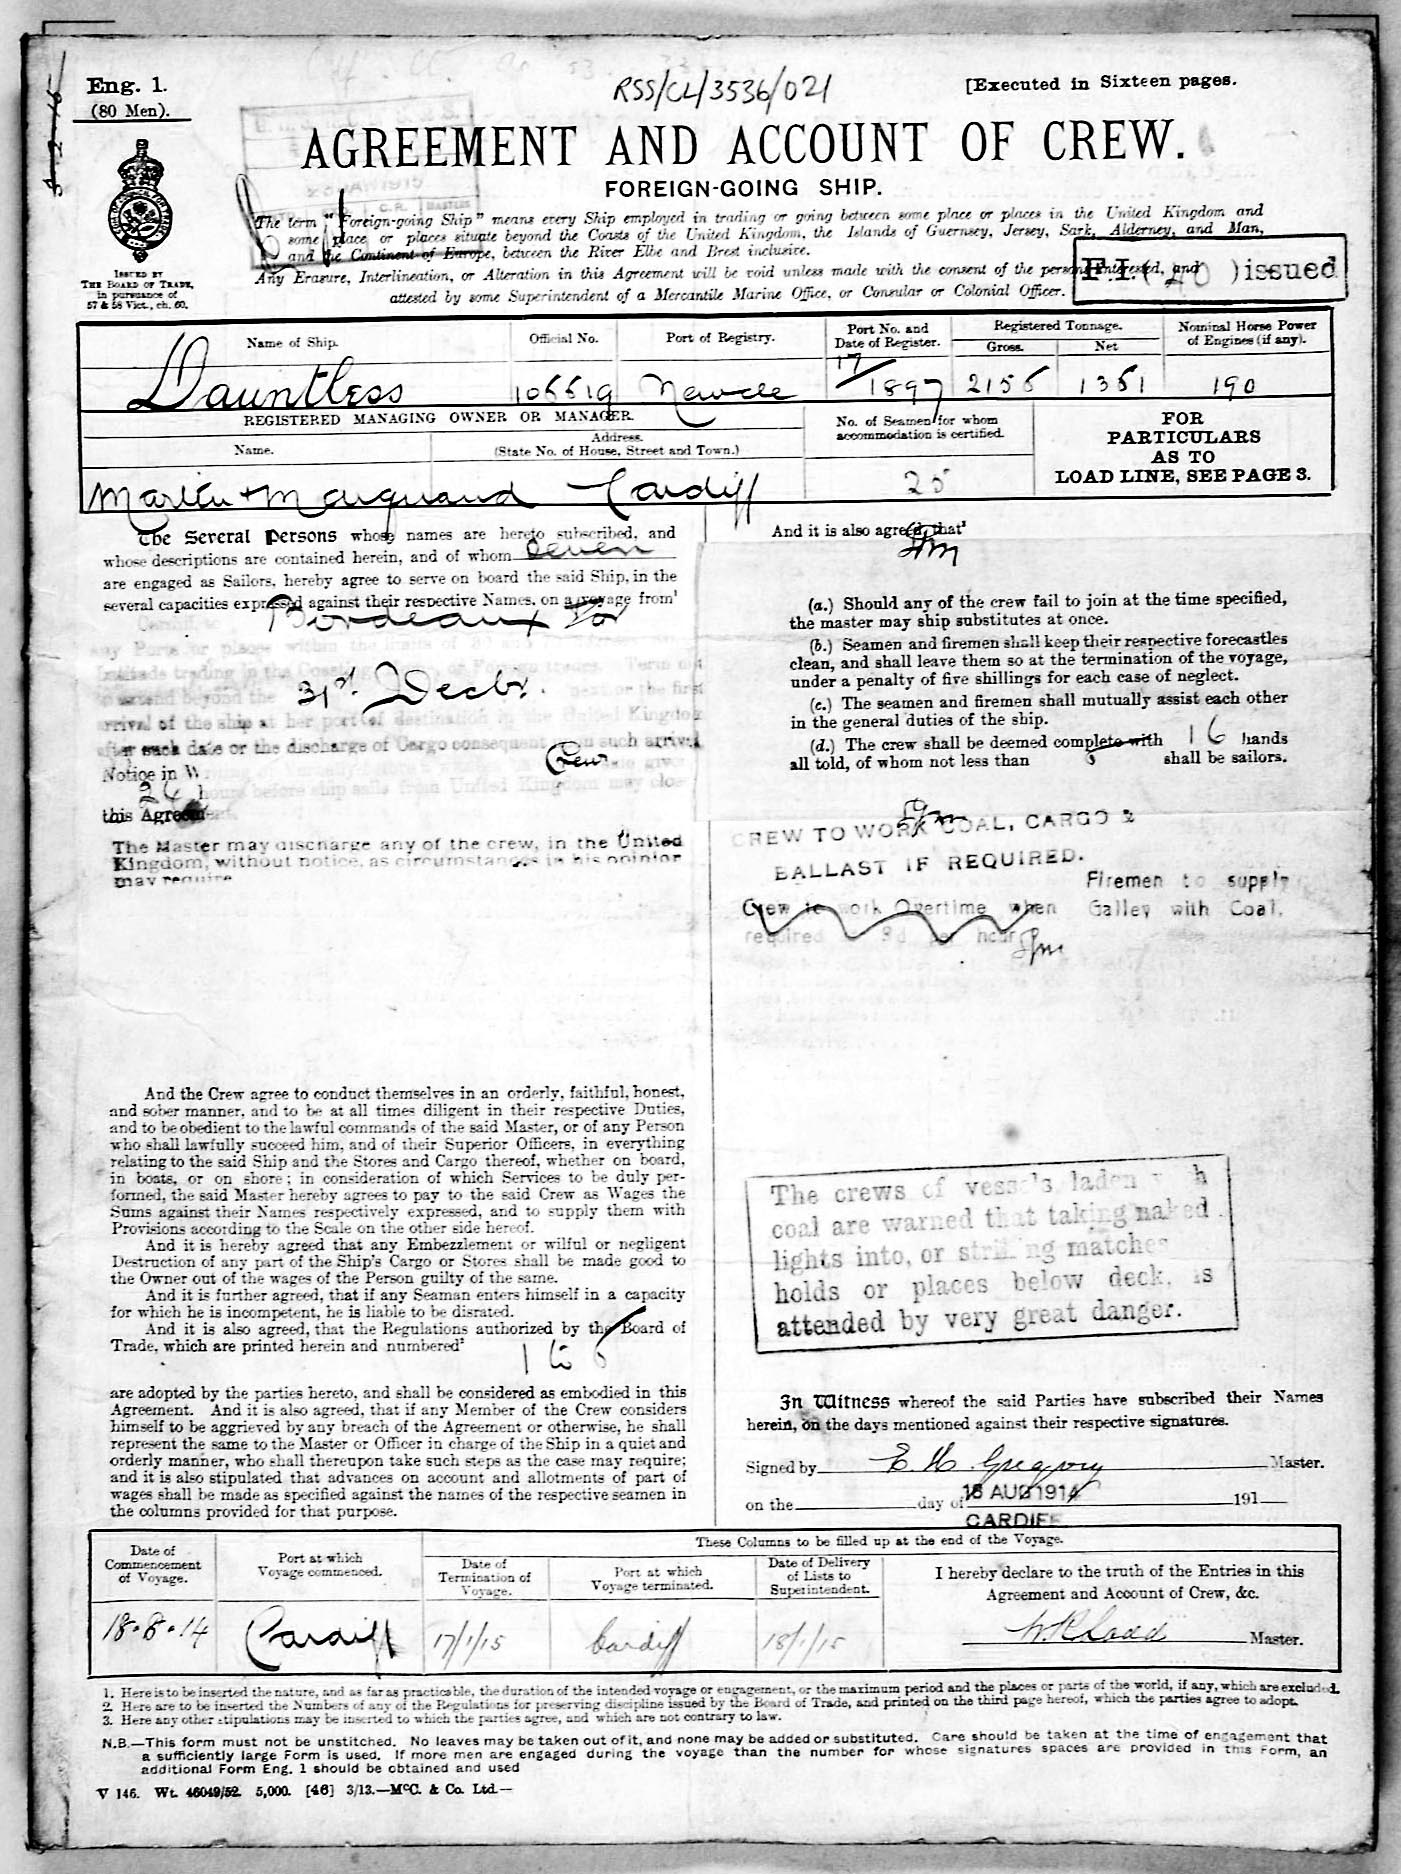 3-2-15
Eng. 1.
(80 Men).
RSS/CL/3536/021
[Executed in Sixteen pages.
AGREEMENT AND ACCOUNT OF CREW.
FOREIGN-GOING SHIP.
ISSUED BY
THE BOARD OF TRADE,
in pursuance of
57 & 58 Vict., ch. 60.
The term "Foreign-going Ship" means every Ship employed in trading or going between some place or places in the United Kingdom and
some place or places situate beyond the Coasts of the United Kingdom, the Islands of Guernsey, Jersey, Sark, Alderney, and Man,
and the Continent of Europe, between the River Elbe and Brest inclusive.
Any Erasure, Interlineation, or Alteration in this Agreement will be void unless made with the consent of the persons interested, and
attested by some Superintendent of a Mercantile Marine Office, or Consular or Colonial Officer.
F.I. (20) issued
Name of Ship.
Official No.
Port of Registry.
Port No. and
Date of Register.
Registered Tonnage.
Gross.
Net
Nominal Horse Power
of Engines (if any).
Dauntless
Newcle
17/1897
2156
1361
190
REGISTERED MANAGING OWNER OR MANAGER.
Name.
Address.
(State No. of House, Street and Town.)
No. of Seamen for whom
accommodation is certified.
FOR
PARTICULARS
AS TO
LOAD LINE, SEE PAGE 3.
Martin & Marquand Cardiff
25
The Several Persons whose names are hereto subscribed, and
whose descriptions are contained herein, and of whom seven
are engaged as Sailors, hereby agree to serve on board the said Ship, in the
several capacities expressed against their respective Names, on a voyage from¹
Bordeaux for
any Ports or places within the limits of
latitude trading in the Coasting or Foreign trades. Term not
to extend beyond the 31st. Decbr. next or the first
arrival of the ship at her port of destination in the United Kingdom
after such date or the discharge of Cargo consequent upon such arrival
Notice in W Crew
24 hours before ship sails from United Kingdom may close
this Agreement.
The Master may discharge any of the crew, in the United
Kingdom, without notice, as circumstances in his opinion
may require
And the Crew agree to conduct themselves in an orderly, faithful, honest,
and sober manner, and to be at all times diligent in their respective Duties,
and to be obedient to the lawful commands of the said Master, or of any Person
who shall lawfully succeed him, and of their Superior Officers, in everything
relating to the said Ship and the Stores and Cargo thereof, whether on board,
in boats, or on shore; in consideration of which Services to be duly per-
formed, the said Master hereby agrees to pay to the said Crew as Wages the
Sums against their Names respectively expressed, and to supply them with
Provisions according to the Scale on the other side hereof.
And it is hereby agreed that any Embezzlement or wilful or negligent
Destruction of any part of the Ship's Cargo or Stores shall be made good to
the Owner out of the wages of the Person guilty of the same.
And it is further agreed, that if any Seaman enters himself in a capacity
for which he is incompetent, he is liable to be disrated.
And it is also agreed, that the Regulations authorized by the Board of
Trade, which are printed herein and numbered²
1 to 6
are adopted by the parties hereto, and shall be considered as embodied in this
Agreement. And it is also agreed, that if any Member of the Crew considers
himself to be aggrieved by any breach of the Agreement or otherwise, he shall
represent the same to the Master or Officer in charge of the Ship in a quiet and
orderly manner, who shall thereupon take such steps as the case may require;
and it is also stipulated that advances on account and allotments of part of
wages shall be made as specified against the names of the respective seamen in
the columns provided for that purpose.
And it is also agreed, that³
(a.) Should any of the crew fail to join at the time specified,
the master may ship substitutes at once.
(b.) Seamen and firemen shall keep their respective forecastles
clean, and shall leave them so at the termination of the voyage,
under a penalty of five shillings for each case of neglect.
(c.) The seamen and firemen shall mutually assist each other
in the general duties of the ship.
(d.) The crew shall be deemed complete with 16 hands
all told, of whom not less than 6 shall be sailors.
CREW TO WORK COAL, CARGO &
BALLAST IF REQUIRED.
Firemen to supply
Galley with Coal.
Crew to work Overtime when
required at 8d per hour
The crews of vessels laden with
coal are warned that taking naked
lights into, or striking matches
holds or places below deck, is
attended by very great danger.
In Witness whereof the said Parties have subscribed their Names
herein, on the days mentioned against their respective signatures.
Signed by E. H. Gregory Master.
on the day of 18 AUG 1914 191
CARDIFF
Date of
Commencement
of Voyage.
Port at which
Voyage commenced.
These Columns to be filled up at the end of the Voyage.
Date of
Termination of
Voyage.
Port at which
Voyage terminated.
Date of Delivery
of Lists to
Superintendent.
I hereby declare to the truth of the Entries in this
Agreement and Account of Crew, &c.
18.8.14
Cardiff
17/1/15
Cardiff
18/1/15
Master.
1. Here is to be inserted the nature, and as far as practicable, the duration of the intended voyage or engagement, or the maximum period and the places or parts of the world, if any, which are excluded.
2. Here are to be inserted the Numbers of any of the Regulations for preserving discipline issued by the Board of Trade, and printed on the third page hereof, which the parties agree to adopt.
3. Here any other stipulations may be inserted to which the parties agree, and which are not contrary to law.
N.B.—This form must not be unstitched. No leaves may be taken out of it, and none may be added or substituted. Care should be taken at the time of engagement that
a sufficiently large Form is used. If more men are engaged during the voyage than the number for whose signatures spaces are provided in this Form, an
additional Form Eng. 1 should be obtained and used
V 146. Wt. 46049/52. 5,000. [46] 3/13.—McC. & Co. Ltd.—